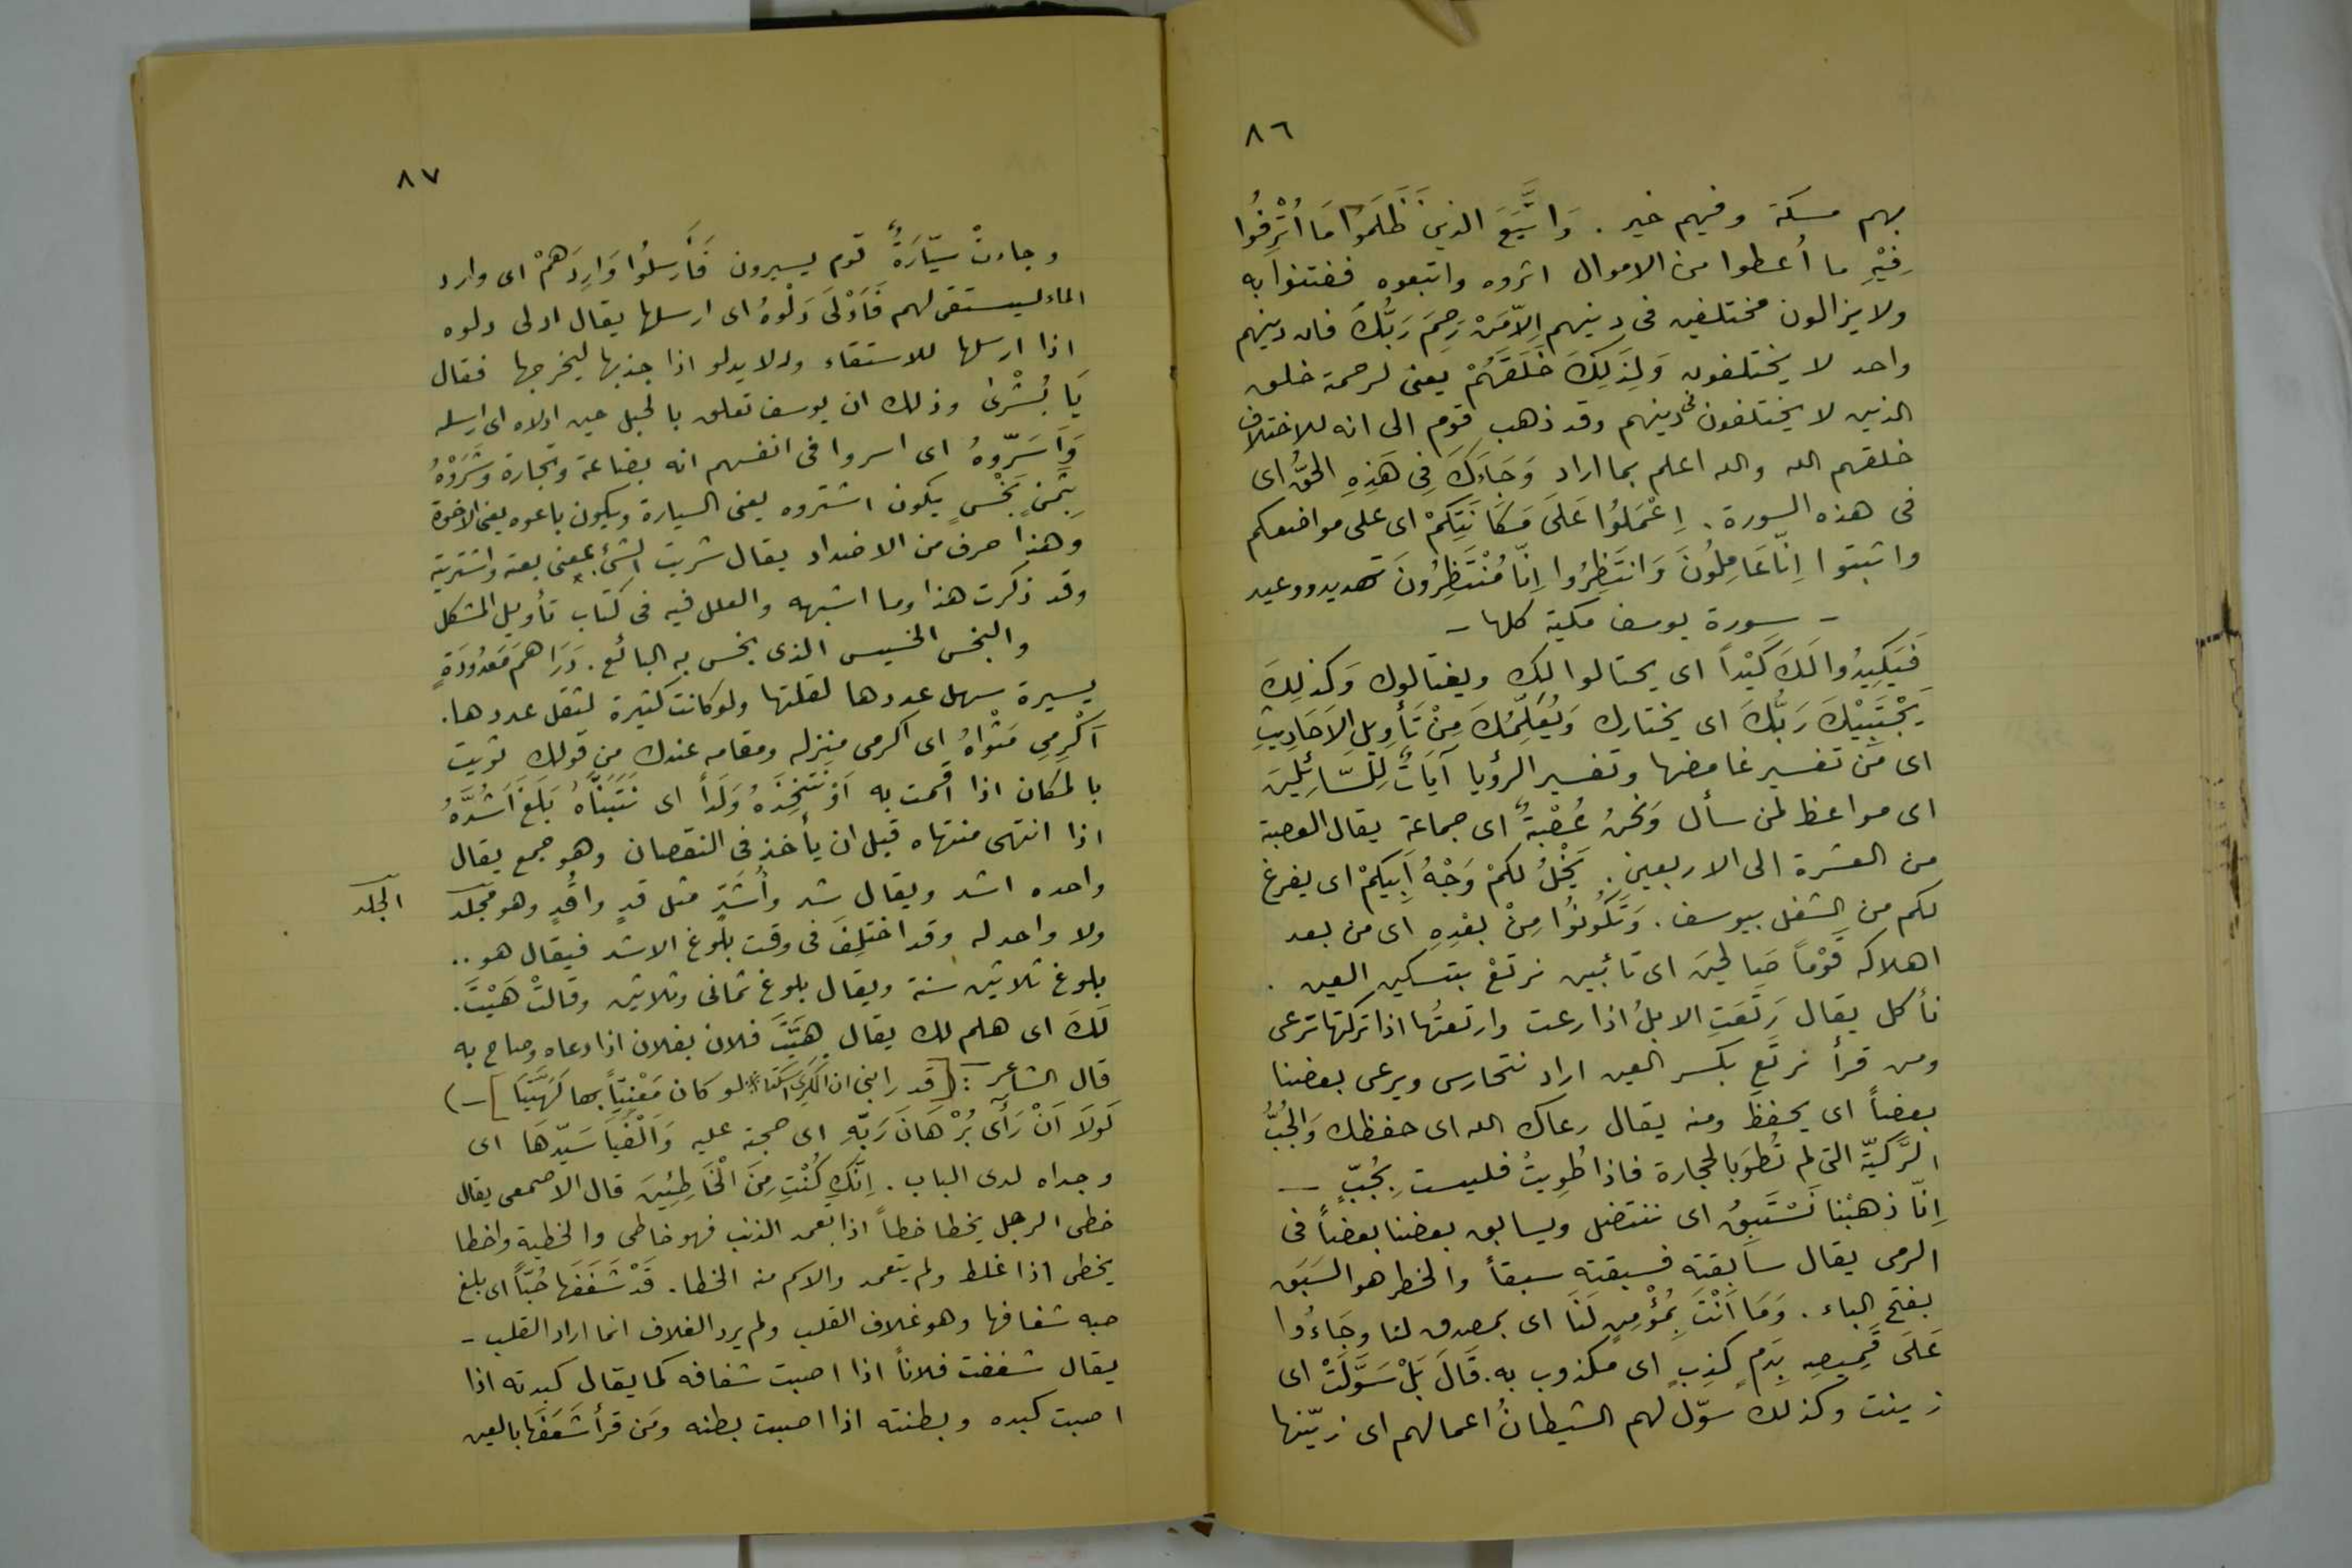 ٨٦
بهم مسكة وفيهم خير . وَاتَّبَعَ الذينَ ظَلَمَوُا مَا أُتْرِفُوا
فِيْهِ ما أُعطوا من الاموال اثروه واتبعوه ففتنوا به
ولا يزالون مختلفين في دينهم اِلاّ مَنْ رَحِمَ رَبُّكَ فان دينهم
واحد لا يختلفون وَلِذَلِكَ خَلَقَهُمْ يعنى لرحمة خلق
الذين لا يختلفون فى دينهم وقد ذهب قوم الى انه للاختلاف
خلقهم الله والله اعلم بما اراد وَجَاءَكَ فِى هَذِهِ الحَقُّ اى
فى هذه السورة . اِعْمَلُوا عَلَى مَكَانَتِكَمْ اى على مواضعكم
واثبتوا اِنّا عَامِلُونَ وَانتَظِرُوا اِنّا مُنْتَظِرُونَ تهديد ووعيد
- سورة يوسف مكية كلها -
فَيَكِيدُوا لَكَ كَيْداً اى يحتالوا لك ويغتالوك وَكذلِكَ
يَجْتَبِيْكَ رَبُّكَ اى يختارك وَيُعَلِّمُكَ مِنْ تَأوِيلِ الاَحَادِيثِ
اى من تفسير غامضها وتفسير الرؤيا آيَاتٌ لِلسّائِلِينَ
اى مواعظ لمن سأل وَنَحْنُ عُصْبةٌ اى جماعة يقال العصبة
من العشرة الى الاربعين . يَخْلُ لكمْ وَجْهُ اَبِيكمْ اى يفرغ
لكم من الشغل بيوسف . وَتَكُونُوا مِنْ بعْدِهِ اى من بعد
اهلاكه قَوْماً صَالحِينَ اى تائبين نرتعْ بتسكين العين .
نأكل يقال رَتَعَتِ الابلُ اذا رعت وارتعتُها اذا تركتها ترعى
ومن قرأ نرتَعِ بكسر العين اراد نتحارس ويرعى بعضنا
بعضاً اى يحفظ ومنه يقال رعاك الله اى حفظك وَالجُبُّ
الرَّكيّة التى لم تُطوَ بالحجارة فاذا طُوِيتْ فليست بِجُبٍّ -
اِنّا ذهبْنا نَسْتَبِقُ اى ننتضل ويسابق بعضنا بعضاً فى
الرمى يقال سابقته فسبقته سبقاً والخطر هو السَبَق
بفتح الباء . وَمَا اَنْتَ بِمُؤْمِنٍ لَنَا اى بمصدق لنا وجَاءُوا
عَلَى قَمِيصِهِ بِدَمٍ كذِبٍ اى مكذوب به . قَالَ بَلْ سَوَّلَتْ اى
زينت وكذلك سوّل لهم الشيطانُ اعمالهم اى زيّنها
٨٧
وجاءتْ سيّارَةٌ قوم يسيرون فَأَرسَلُوا وَارِدَهَمْ اى وارد
الماء ليستقى لهم فَأَدْلَى دَلْوهُ اى ارسلها يقال ادلى دلوه
اذا ارسلها للاستقاء ودلا يدلو اذا جذبها ليخرجها فقال
يَا بُشْرىٰ وذلك ان يوسف تعلق بالحبل حين ادلاه اى ارسله
وَأَسَرّوهُ اى اسروا فى انفسهم انه بضاعة وتجارة وَشَرَوْهُ
بِثمَنٍ بَخْسٍ يكون اشتروه يعنى السيارة ويكون باعوه يعنى الاخوة
وهذا حرف من الاضداد يقال شريت الشئ بمعنى بعته واشتريته
وقد ذكرت هذا وما اشبهه والعلل فيه فى كتاب تأويل المشكل
والبخس الخسيس الذى بخس به البائع . دَرَاهَمَ مَعدُودَةٍ
يسيرة سهل عددها لقلتها ولو كانت كثيرة لثقل عددها .
اَكْرِمِى مَثْوَاهُ اى اكرمى منزله ومقامه عندك من قولك ثويت
بالمكان اذا اقمت به اَوْ نَتّخِذَهُ وَلَداً اى نَتَبَنَّاهُ بَلَغَ اَشُدَّهُ
اذا انتهى منتهاه قبل ان يأخذ فى النقصان وهو جمع يقال
واحده اشد ويقال شد وأَشُدّ مثل قدٍ واقُدٍ وهو مجلد
الجلد
ولا واحد له وقد اختلِفَ فى وقت بلوغ الاشد فيقال هو ..
بلوغ ثلاثين سنة ويقال بلوغ ثمانى وثلاثين وقالتْ هَيْتَ .
لَكَ اى هلم لك يقال هَيَّتَ فلان بفلان اذا دعاه وصاح به
قال الشاعر : [قد رابنى ان الكَرِىَّ اسكتا * لو كان مَعْنِيّاً بها لَهَيَّتَا] -)
لَوْلَا اَنْ رَأىٰ بُرْهَانَ رَبّهِ اى حجته عليه وَاَلْفَيَا سَيّدَهَا اى
وجداه لدى الباب . اِنَّكِ كُنْتِ مِنَ الْخَاطِئِينَ قال الاصمعى يقال
خطى الرجل يخطا خطاً اذا تعمد الذنب فهو خاطى والخطية واخطا
يخطى اذا غلط ولم يتعمد والاسم منه الخطا . قَدْ شَغَفَهَا حُبّاً اى بلغ
حبه شغافها وهو غلاف القلب ولم يرد الغلاف انما اراد القلب -
يقال شغفت فلاناً اذا اصبت شغافه كما يقال كبدته اذا
اصبت كبده وبطنته اذا اصبت بطنه ومَن قرأ شَعَفَهَا بالعين